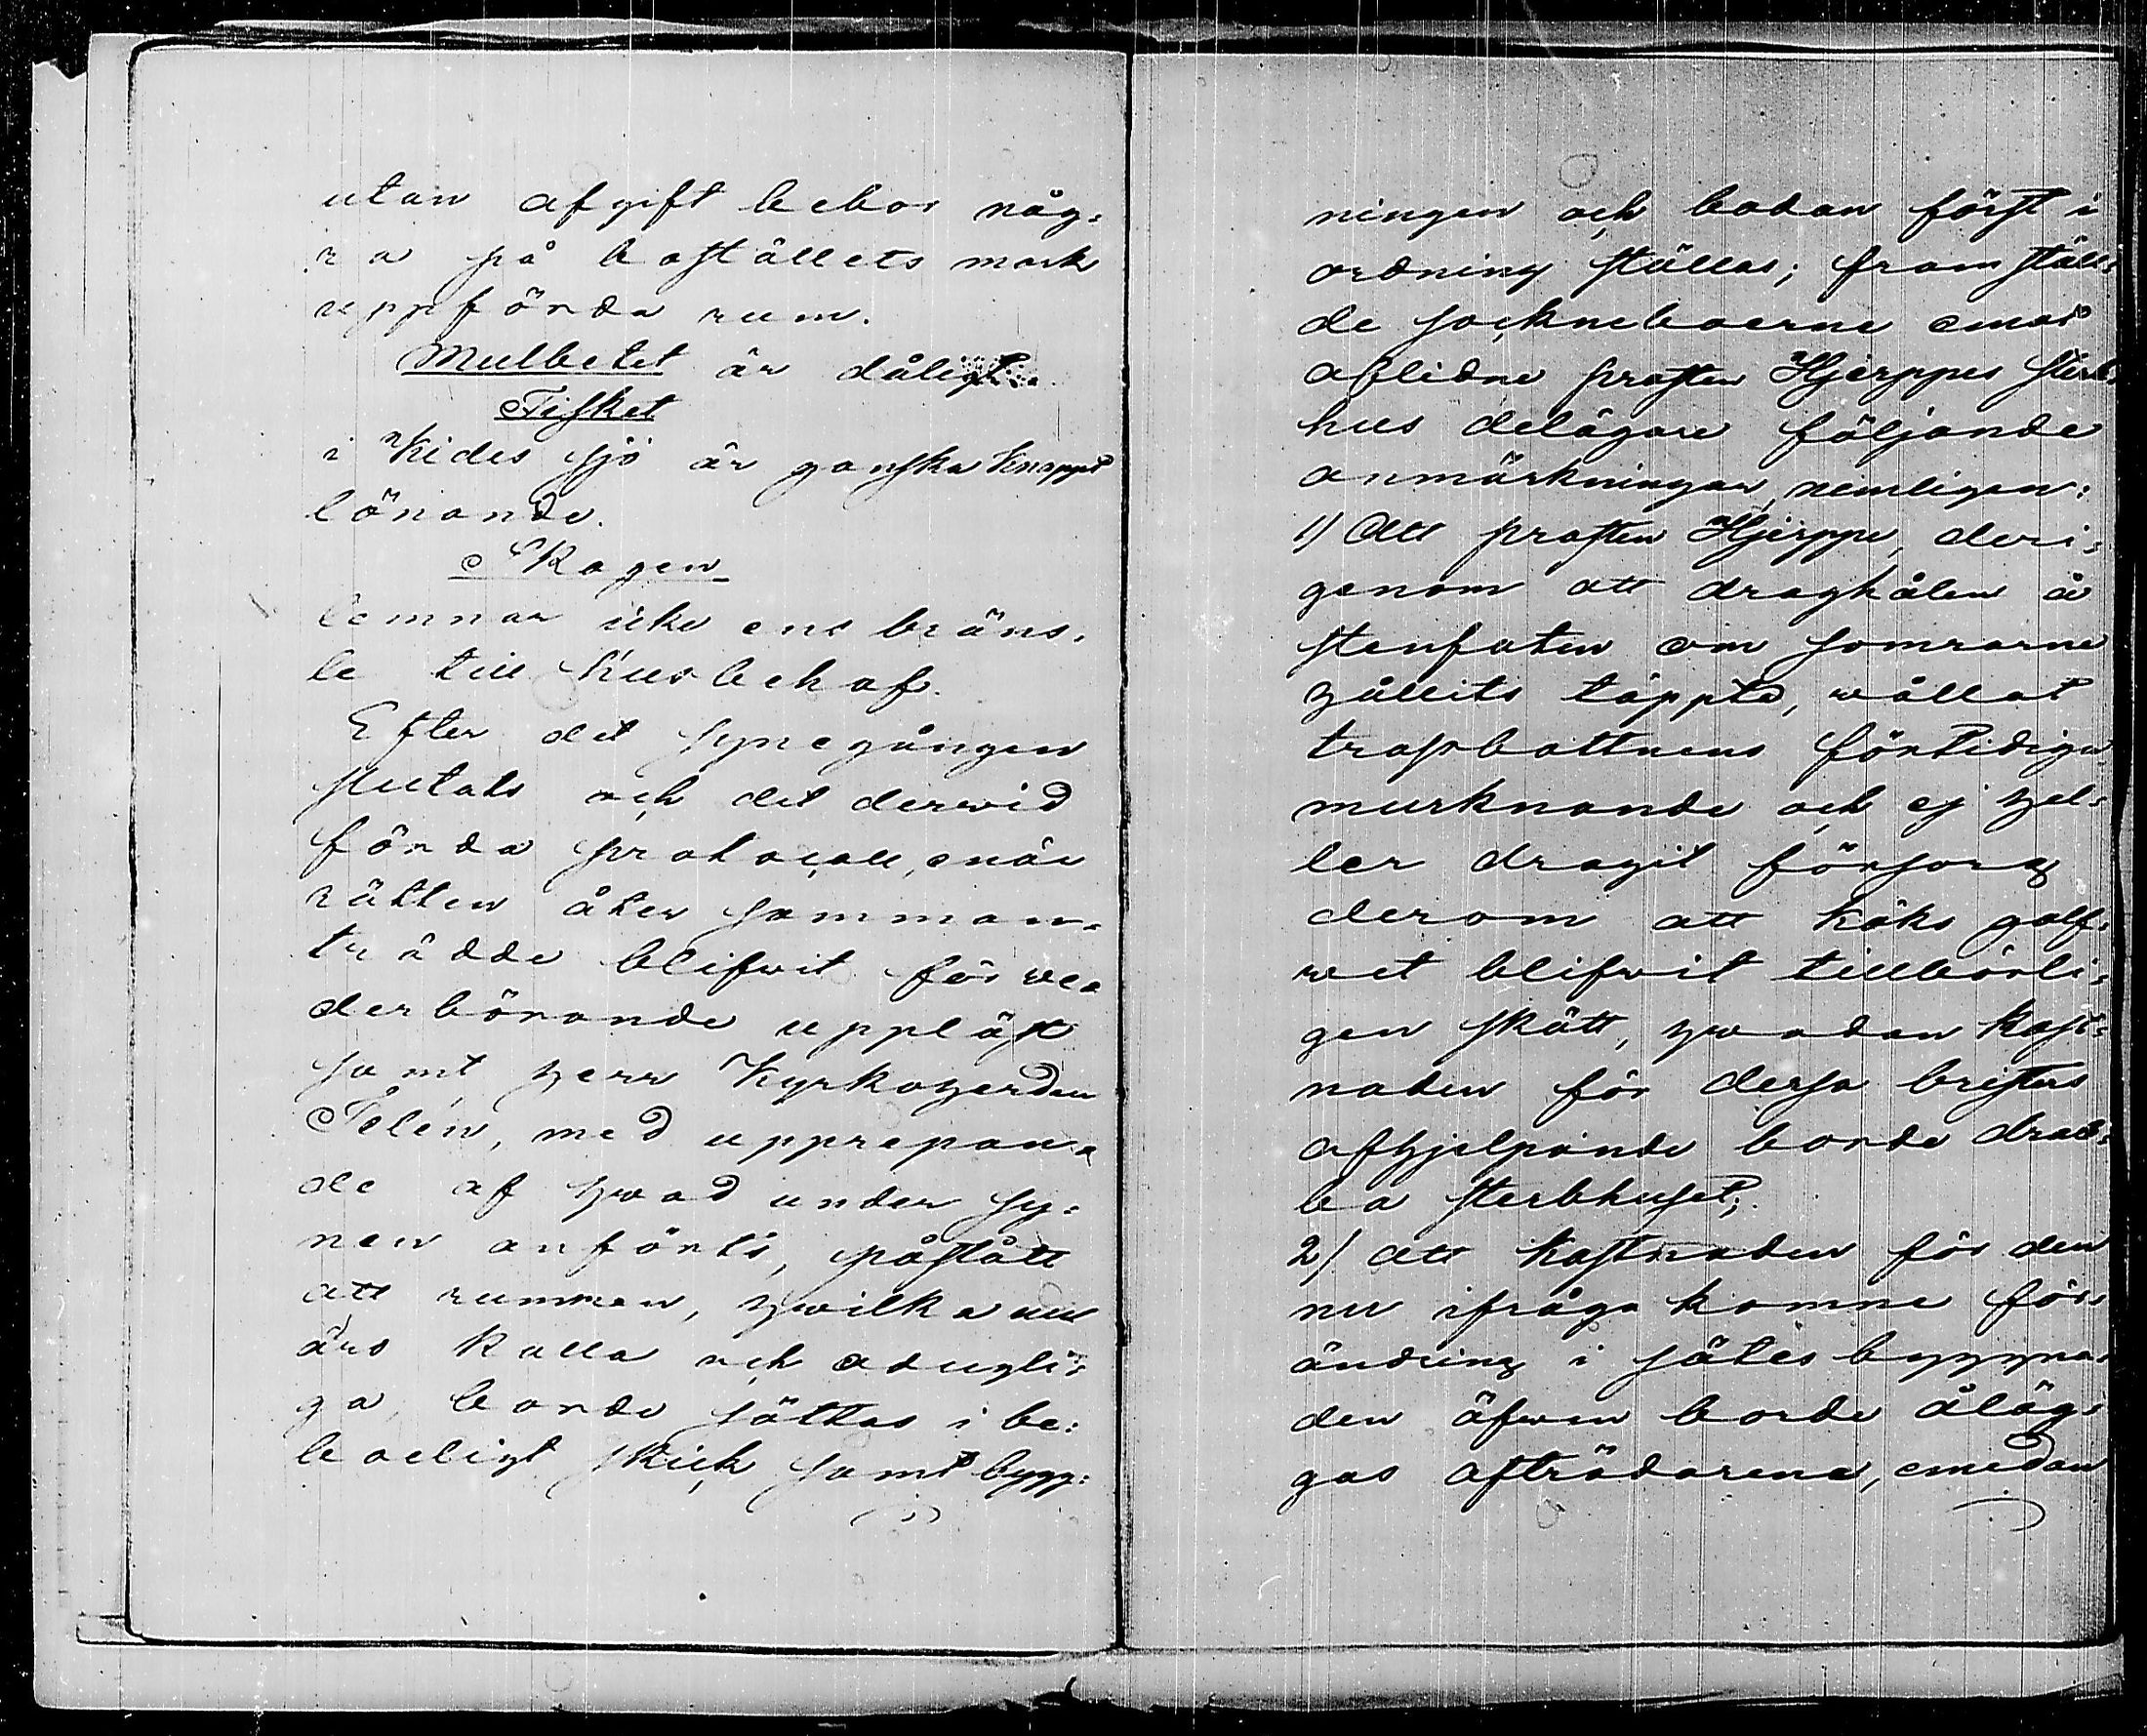 utan afgift bebor någ:
ra på boställets mark
uppförda rum.
Mulbetet är dåligt
Fisket
i Kides sjö är ganska knappt
lönande.
Skogen
lemnar icke ens bräns:
le till husbehof.
Efter det synegången
slutats och det dervid
förda protocoll, enär
rätten åter samman:
trädde blifvit för ve:
derbörande uppläst
samt herr Kyrkoherden
Telén, med upprepan:
de af hvad under sy:
nen anförts, påstått
att rummen, hvilka nu
äro kalla och odugli:
ga, borde sättas i be:
boeligt skick samt bygg:
ningen och bodan först i
ordning ställas; framstäl:
de sockneboerne emot
aflidne prosten Hjerppes sterb:
hus delägare följande
anmärkningar, nemligen:
1) Att prosten Hjerppe, deri:
genom att draghålen å
stenfoten om somrarne
hållits täppta, vållat
trossbottnens förtidiga
murknande och ej hel:
ler dragit försorg
derom att köks golf:
vet blifvit tillbörli:
gen skött, hvadan kost:
naden för dessa bristers
afhjelpande borde drab:
ba sterbhuset;
2) att kostnaden för den
nu ifråga komne för:
ändring i sätes byggna:
den äfven borde åläg:
gas afträdarena, emedan